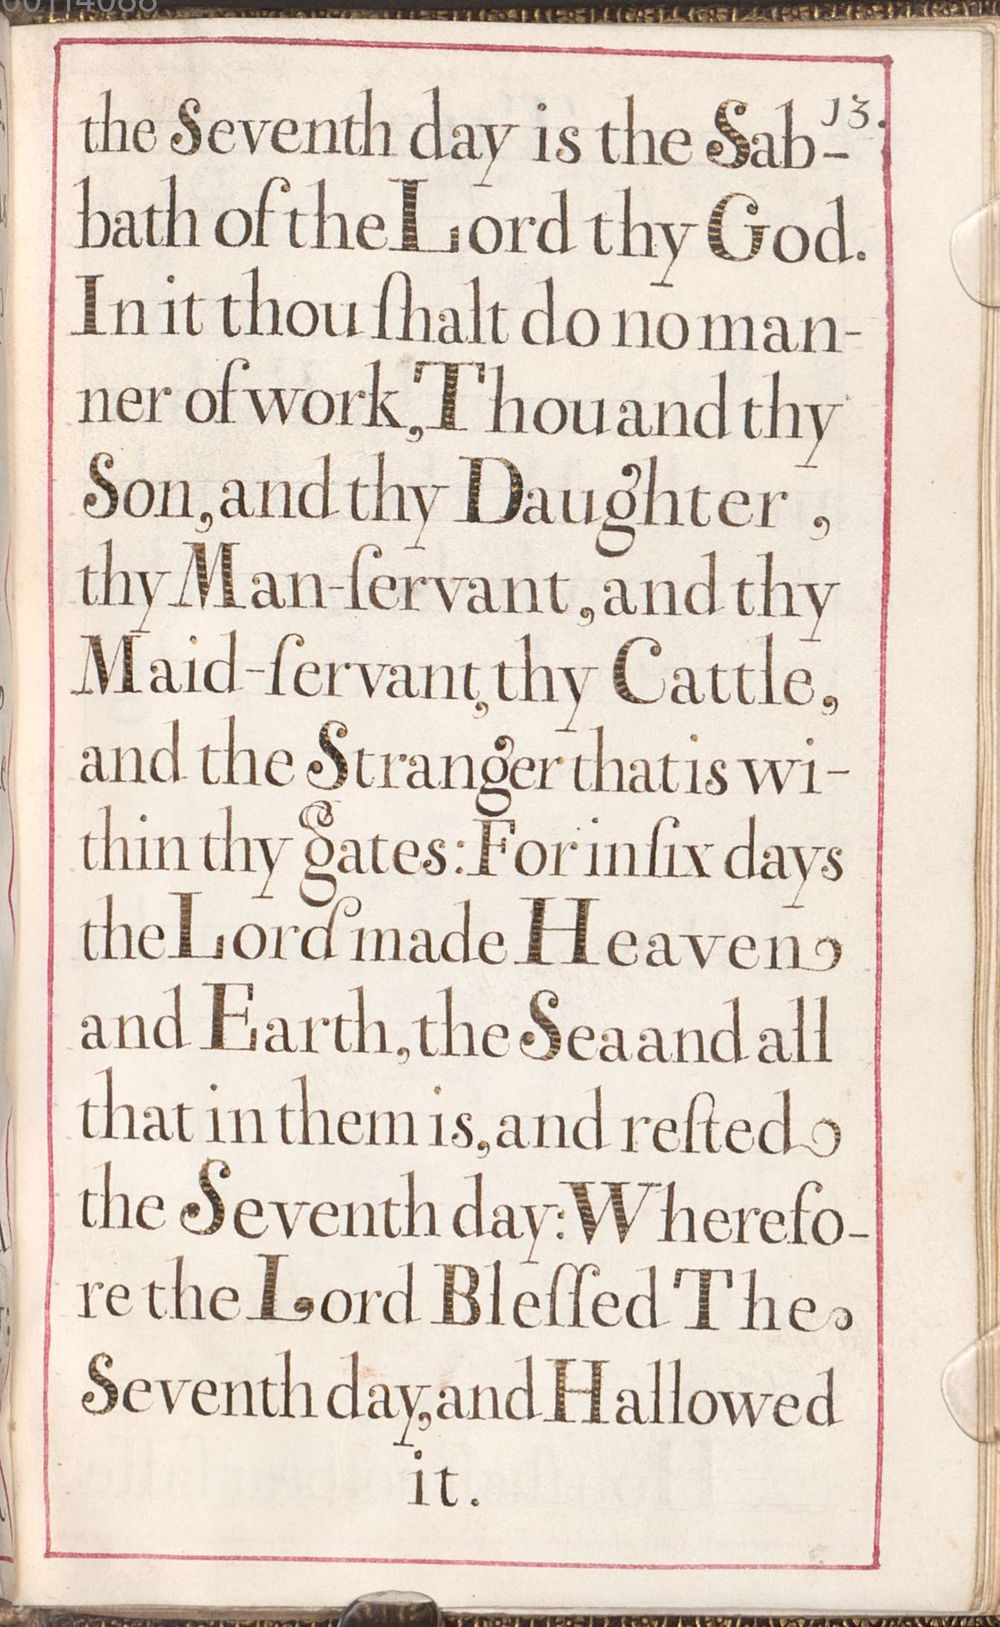 00114088
13.
the Seventh day is the Sab-
bath of the Lord thy God.
In it thou ſhalt do no man-
ner of work, Thou and thy
Son, and thy Daughter,
thy Man-ſervant, and thy
Maid-ſervant, thy Cattle,
and the Stranger that is wi-
thin thy gates: For in ſix days
the Lord made Heaven
and Earth, the Sea and all
that in them is, and reſted
the Seventh day: Wherefo-
re the Lord Bleſſed The
Seventh day, and Hallowed
it.